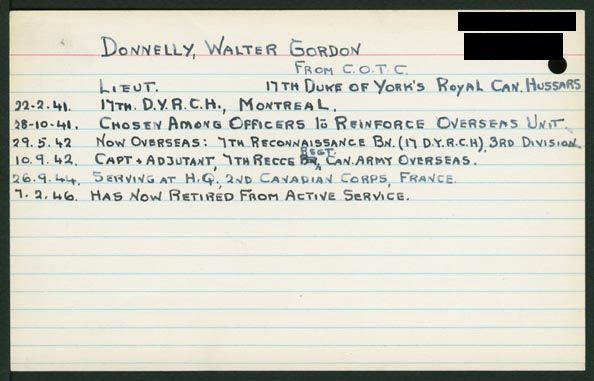 DONNELLY, WALTER GORDON
FROM C.O.T.C.
LIEUT. 17TH DUKE OF YORK'S ROYAL CAN. HUSSARS
22-2.41. 17TH. D.Y.R.C.H., MONTREAL.
28-10-41. CHOSEN AMONG OFFICERS TO REINFORCE OVERSEAS UNIT.
29.5.42 NOW OVERSEAS: 7TH RECONNAISSANCE BN. (17 D.Y.R.C.H), 3RD DIVISION
REGT.
10.9.42. CAPT + ADJUTANT, 7TH RECCE BN, CAN. ARMY OVERSEAS.
26.9.44. SERVING AT H.Q., 2ND CANADIAN CORPS, FRANCE.
7.2.46. HAS NOW RETIRED FROM ACTIVE SERVICE.